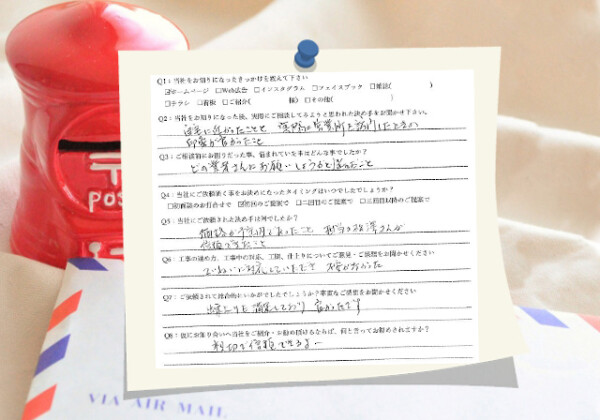 Q1：当社をお知りになったきっかけを教えて下さい
☑ホームページ □Web広告 □インスタグラム □フェイスブック □雑誌( )
□チラシ □看板 □ご紹介( 様) □その他( )
Q2：当社をお知りになった後、実際にご相談してみようと思われた決め手をお聞かせ下さい。
印象が良かったこと
Q3：ご相談前にお困りだった事、悩まれていた事はどんな事でしたか？
どの業者さんにお願いしようかと悩んだこと
Q4：当社にご依頼頂く事をお決めになったタイミングはいつでしたでしょうか？
□初面談のお打合せで ☑初回のご提案で □二回目のご提案で □三回目以降のご提案で
Q5：当社にご依頼された決め手は何でしたか？
価格が予算内であったこと 担当の さんが
信頼できたこと
Q6：工事の進め方、工事中の対応、工期、仕上りについてご意見・ご感想をお聞かせください
ていねいに対応していただき
Q7：ご依頼されて総合的にいかがでしたでしょうか？率直なご感想をお聞かせください
満足しており 良かったです
Q8：仮にお知り合いへ当社をご紹介・お勧め頂けるならば、何と言ってお勧めされますか？
親切で信頼できるよ
〒
POS
VIA AIR MAIL